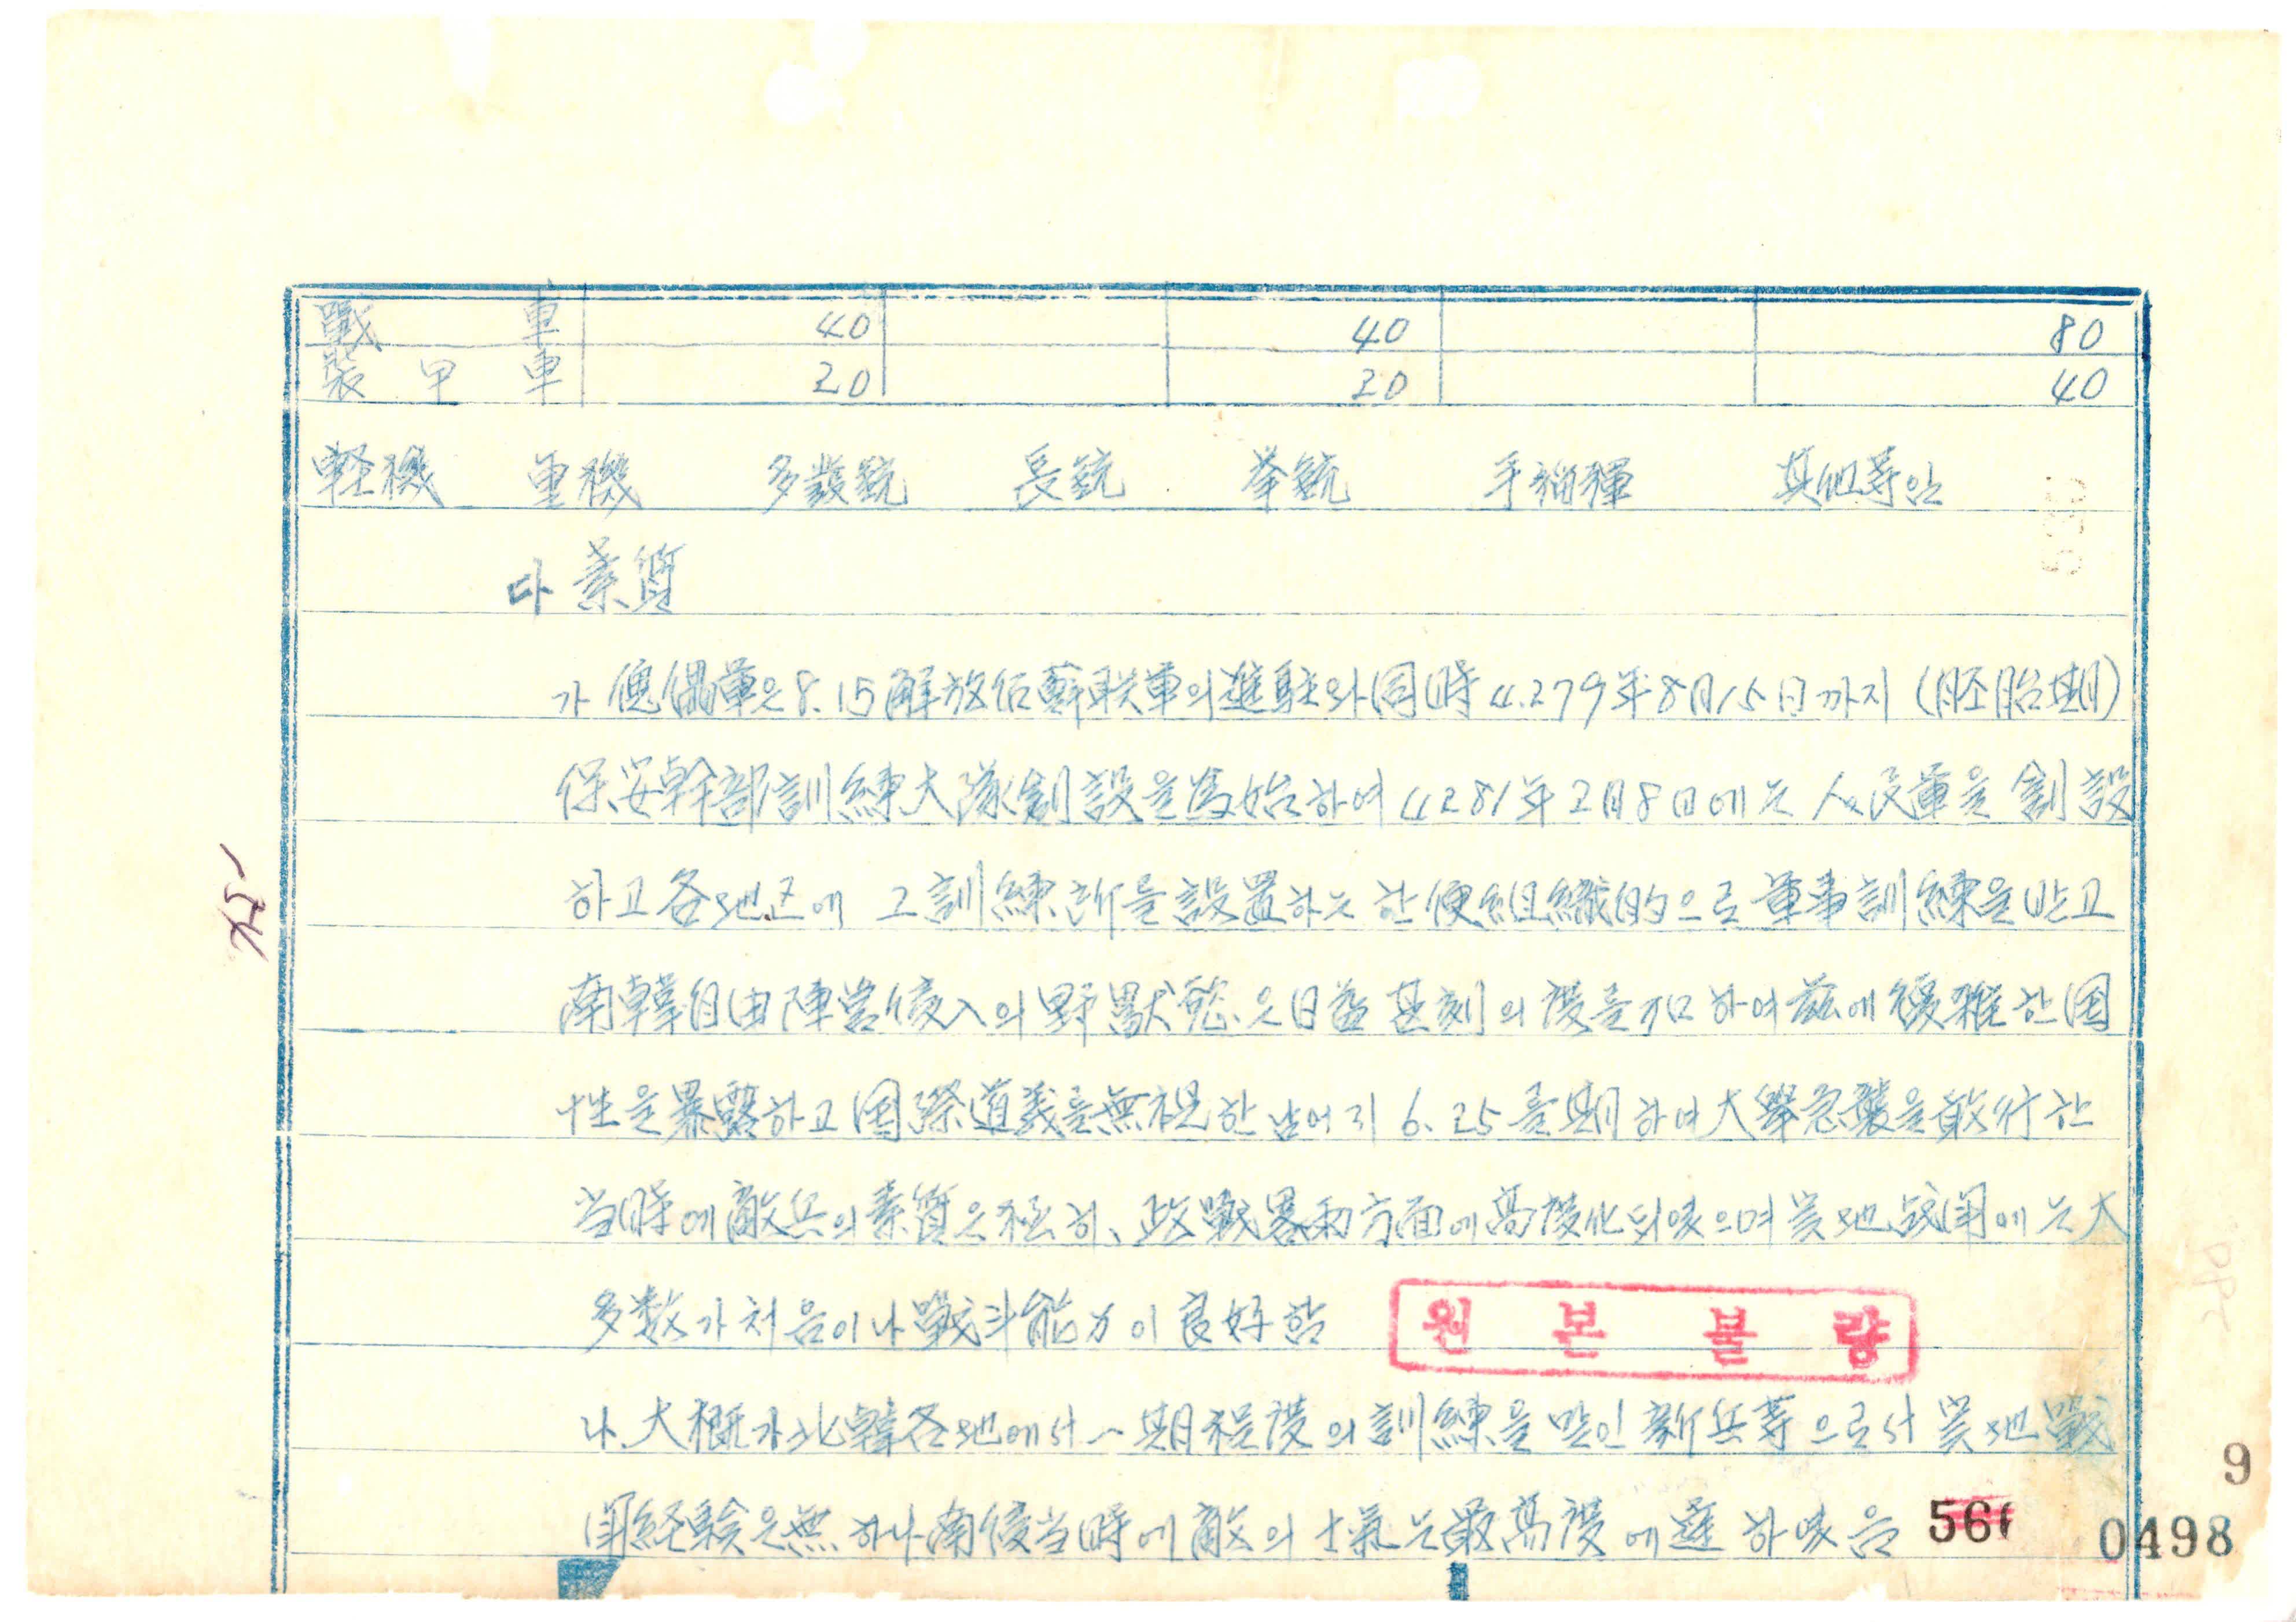 戰 車 40 40 80
裝 甲 車 20 20 40
軽機 重機 多發銃 長銃 拳銃 手榴弾 其他等임
다 素質
가 傀儡軍은 8.15 解放后 蘇联軍의 進駐와 同時 4.279年 8月 15日까지 (胚胎期)
保安幹部訓練大隊 創設을 爲始하여 4281年 2月 8日에는 人民軍을 創設
하고 各地区에 그 訓練所를 設置하는 한便 組織的으로 軍事訓練을 받고
南韓自由陣営侵入의 野獸慾은 日益 甚刻의 度를 加하여 茲에 複雜한 国
性을 暴露하고 国際道義를 無視한 남어지 6.25를 期하여 大擧急襲을 敢行한
当時에 敵兵의 素質은 極히 政戰畧 兩方面에 高度化되였으며 実地战闘에는 大
多数가 처음이나 戰斗能力이 良好함
원 본 불 량
나. 大概가 北韓各地에서 一期程度의 訓練을 받인 新兵等으로서 実地戰
闘経験은 無하나 南侵当時에 敵의 士氣는 最高度에 達하였음
566
9
0498